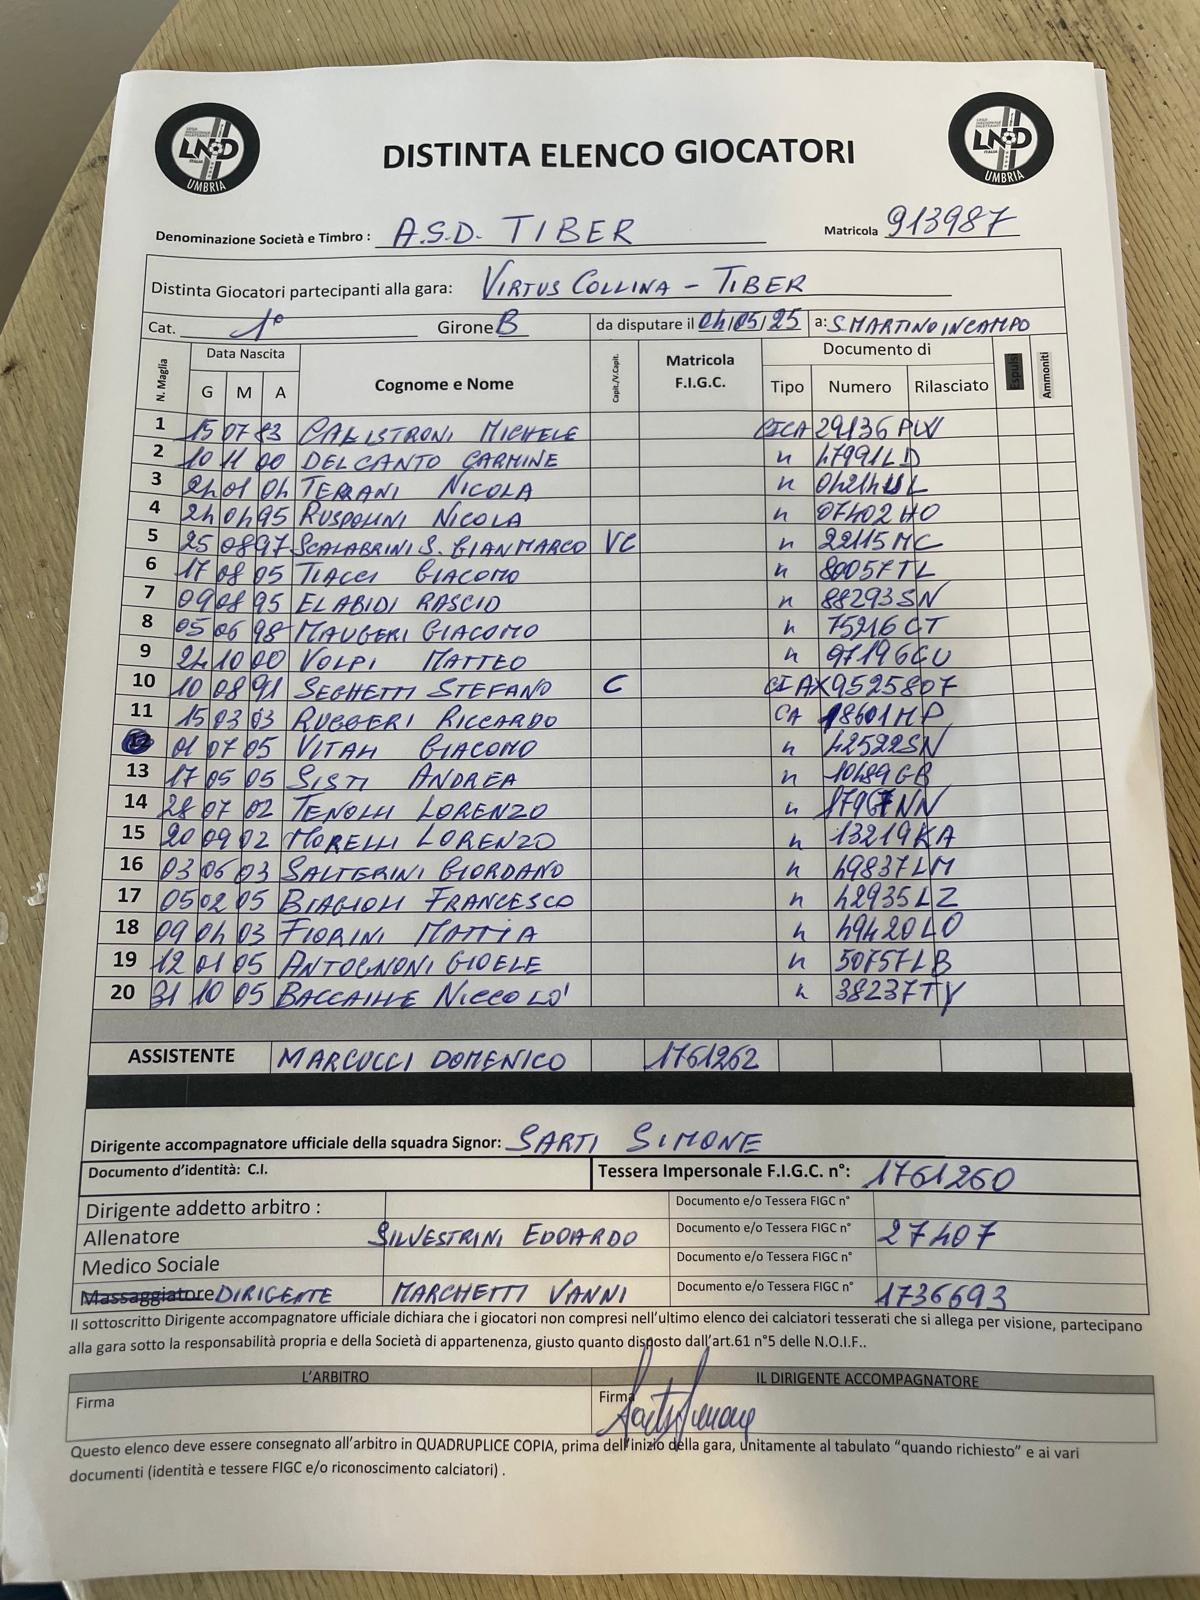 LND UMBRIA
LND UMBRIA
DISTINTA ELENCO GIOCATORI
Denominazione Società e Timbro : A.S.D. TIBER Matricola 913987
Distinta Giocatori partecipanti alla gara: VIRTUS COLLINA - TIBER
Cat. 1° Girone B da disputare il 04/05/25 a: S. MARTINO IN CAMPO
N. Maglia Data Nascita G M A Cognome e Nome Capit./V.Capit. Matricola F.I.G.C. Documento di Tipo Numero Rilasciato Espulsi Ammoniti
1 15 07 83 CALISTRONI MICHELE CICA 29136 PLV
2 10 11 00 DEL CANTO CARMINE " 47991LD
3 24 01 04 TERRANI NICOLA "
4 24 04 95 RUSPOLINI NICOLA " 07402 HO
5 25 08 97 SCALABRINI S. GIANMARCO VC " 22115MC
6 17 08 05 TIACCI GIACOMO " 80057TL
7 09 08 95 EL ABIDI RASCID " 88293SN
8 05 06 98 MAUGERI GIACOMO " 75216CT
9 24 10 00 VOLPI MATTEO " 97196CU
10 10 08 91 SEGHETTI STEFANO C CI AX9525807
11 15 03 03 RUGGERI RICCARDO CA 18601MP
12 01 07 05 VITALI GIACOMO " 42522SN
13 17 05 05 SISTI ANDREA " 10489GB
14 28 07 02 TENOLLI LORENZO " 17967NN
15 20 09 02 MORELLI LORENZO " 13219KA
16 03 06 03 SALTERINI GIORDANO " 49837LM
17 05 02 05 BIAGIOLI FRANCESCO " 42935LZ
18 09 04 03 FIORINI MATTIA " 49420LO
19 12 01 05 ANTOGNONI GIOELE " 50757LB
20 31 10 05 BACCAILLE NICCOLO' " 38237TY
ASSISTENTE MARCUCCI DOMENICO 1761262
Dirigente accompagnatore ufficiale della squadra Signor: SARTI SIMONE
Documento d'identità: C.I. Tessera Impersonale F.I.G.C. n°: 1761260
Dirigente addetto arbitro : Documento e/o Tessera FIGC n°
Allenatore SILVESTRINI EDOARDO Documento e/o Tessera FIGC n° 27407
Medico Sociale Documento e/o Tessera FIGC n°
Massaggiatore DIRIGENTE MARCHETTI VANNI Documento e/o Tessera FIGC n° 1736693
Il sottoscritto Dirigente accompagnatore ufficiale dichiara che i giocatori non compresi nell'ultimo elenco dei calciatori tesserati che si allega per visione, partecipano
alla gara sotto la responsabilità propria e della Società di appartenenza, giusto quanto disposto dall'art.61 n°5 delle N.O.I.F..
L'ARBITRO IL DIRIGENTE ACCOMPAGNATORE
Firma Firma Sarti Simone
Questo elenco deve essere consegnato all'arbitro in QUADRUPLICE COPIA, prima dell'inizio della gara, unitamente al tabulato "quando richiesto" e ai vari
documenti (identità e tessere FIGC e/o riconoscimento calciatori) .